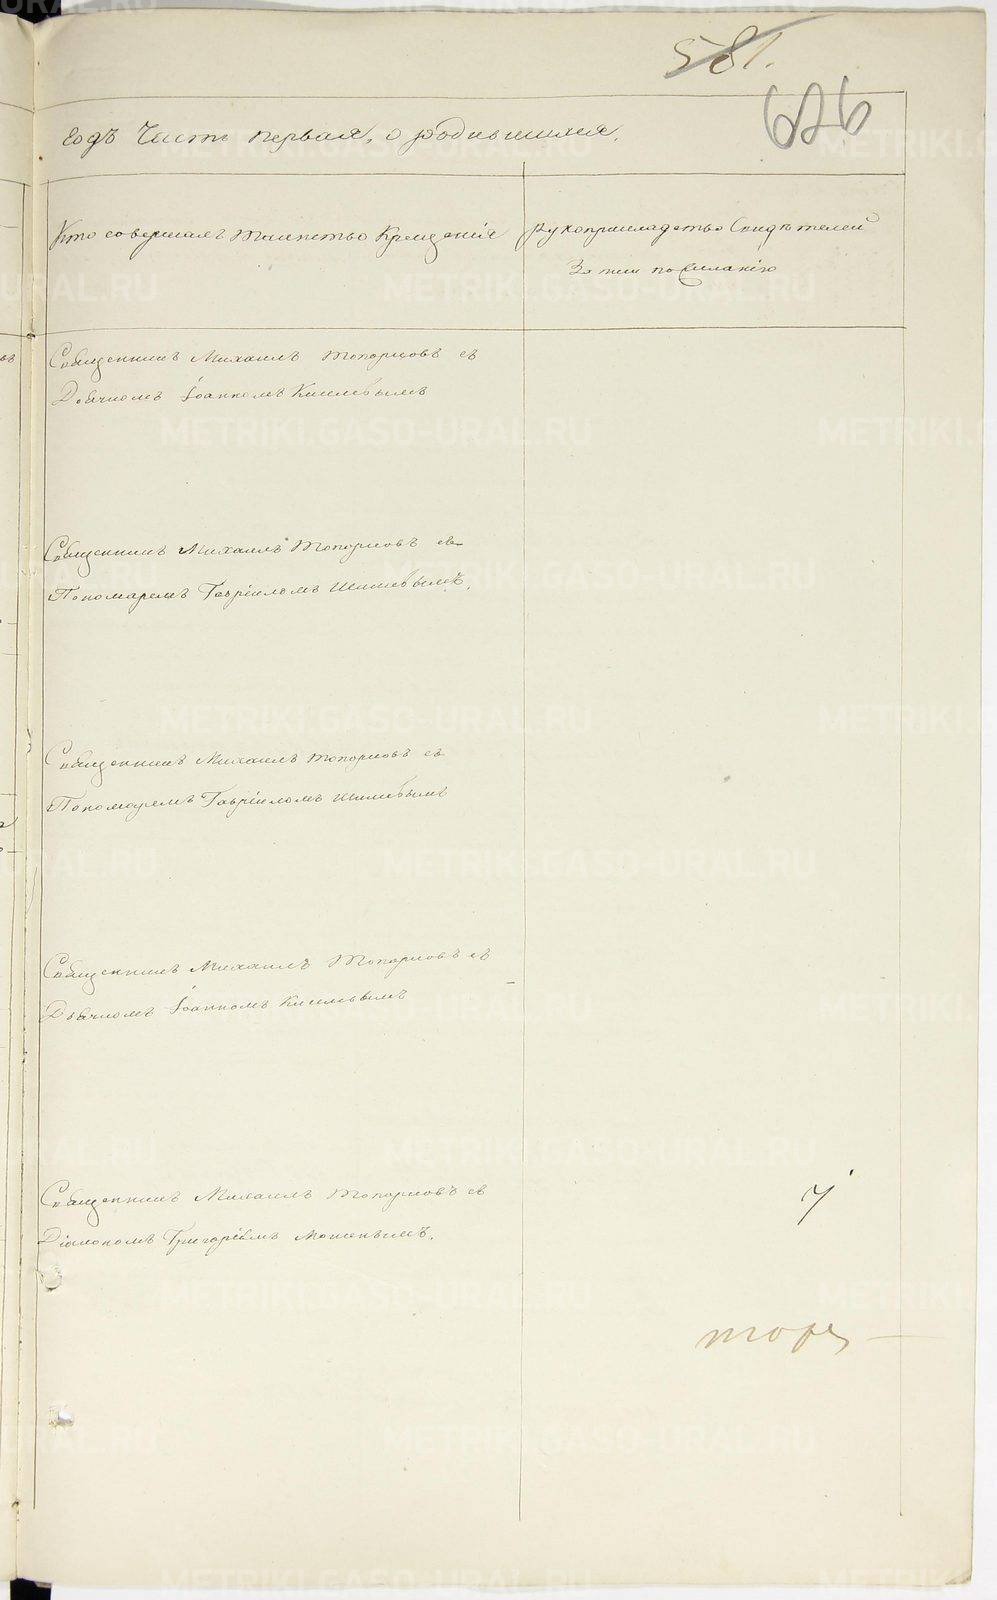 581.
626
годъ Часть первая, о родившихся.
Кто совершалъ таинство Крещенія
Рукоприкладство Свидѣтелей
записи по желанію
Священникъ Михаилъ Топорковъ съ
Дьячкомъ Іоанномъ Киселевымъ
Священникъ Михаилъ Топорковъ съ
Пономаремъ Гавріиломъ Шишевымъ.
Священникъ Михаилъ Топорковъ съ
Пономаремъ Гавріиломъ Шишевымъ
Священникъ Михаилъ Топорковъ съ
Дьячкомъ Іоанномъ Киселевымъ
Священникъ Михаилъ Топорковъ съ
Діакономъ Григоріемъ
METRIKI.GASO-URAL.RU